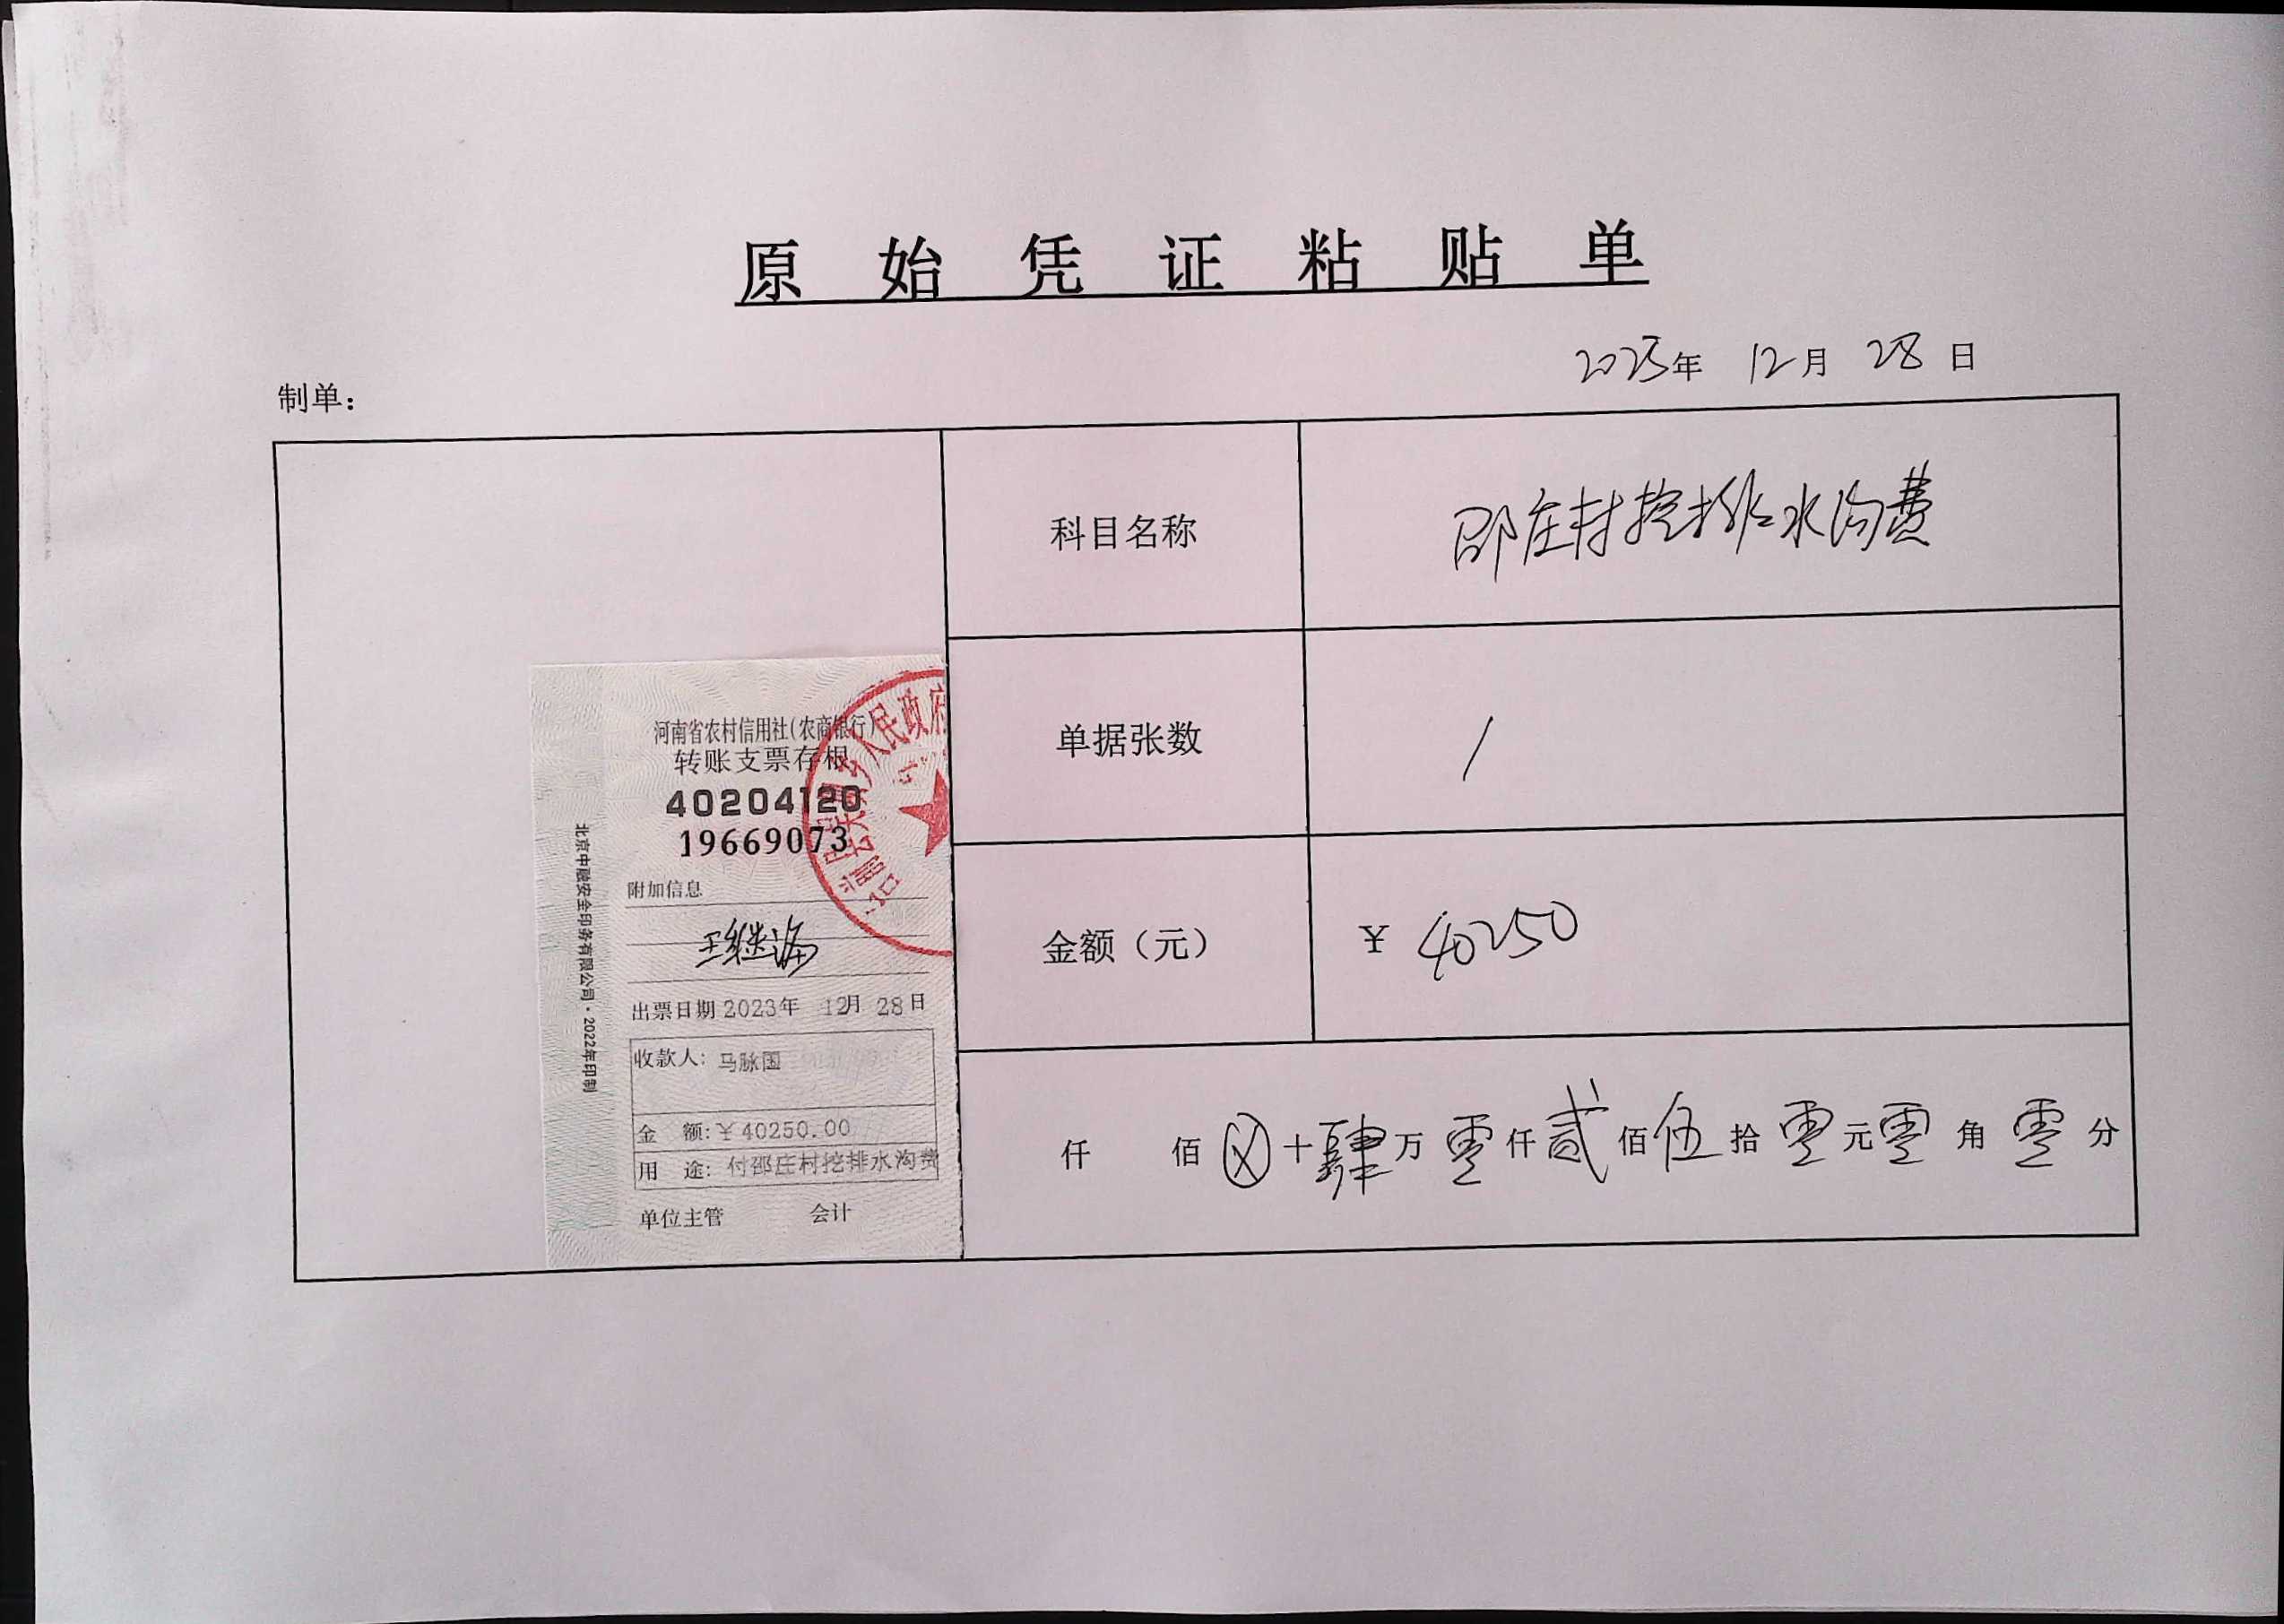 原始凭证粘贴单
2023年 12月 28日
制单：
科目名称 邵庄村挖排水沟费
单据张数 1
金额（元） ¥ 40250
仟 佰 ⊗ 十 肆 万 零 仟 贰 佰 伍 拾 零 元 零 角 零 分
河南省农村信用社(农商银行)
转账支票存根
40204120
19669073
附加信息
出票日期 2023年 12月 28日
收款人: 马脉国
金 额: ¥40250.00
用 途: 付邵庄村挖排水沟费
单位主管 会计
北京中融安全印务有限公司·2022年印制
人民政府